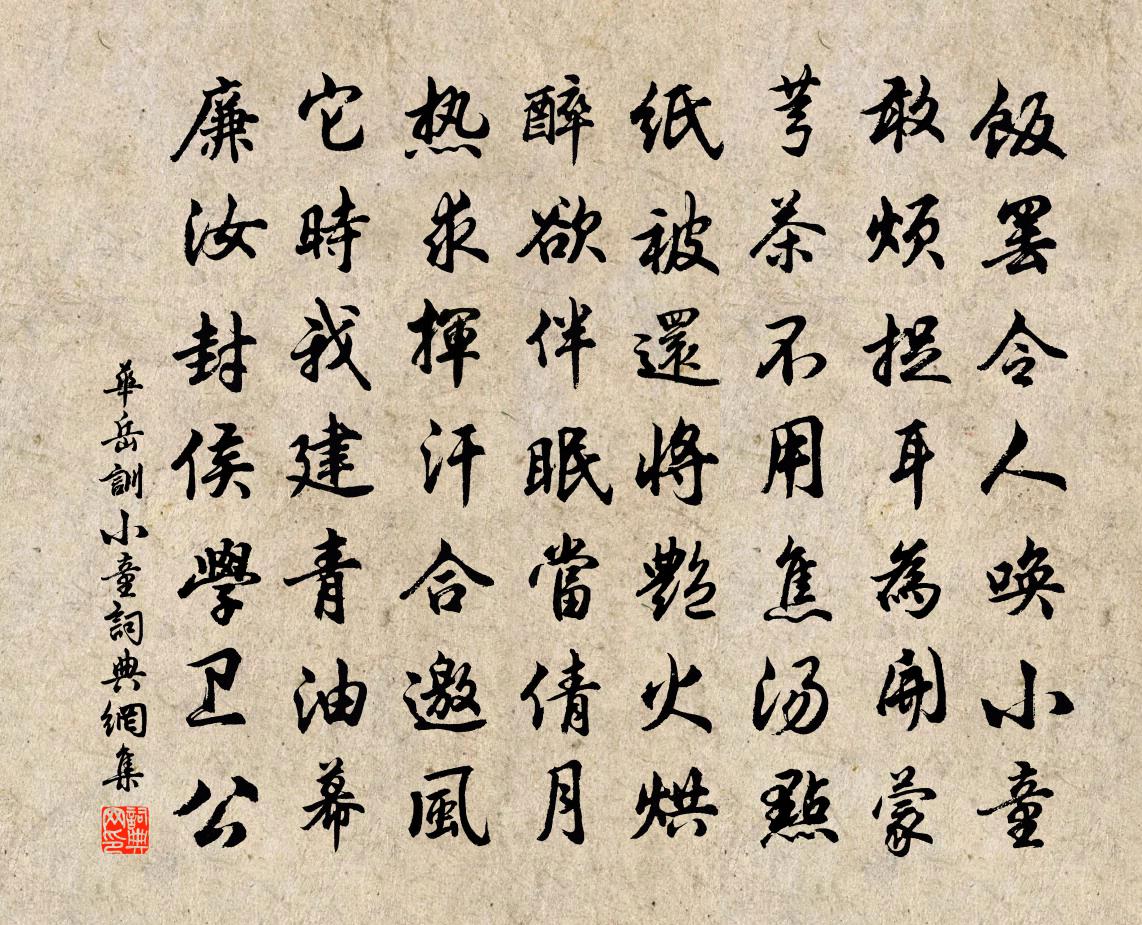 飯罢令人唤小童
敢煩捉耳為開蒙
芎茶不用焦湯點
紙被還将艷火烘
醉欲伴眠當倩月
热求揮汗合邀風
它時我建青油幕
廉汝封侯學卫公
華岳訓小童詞典網集
詞典网印